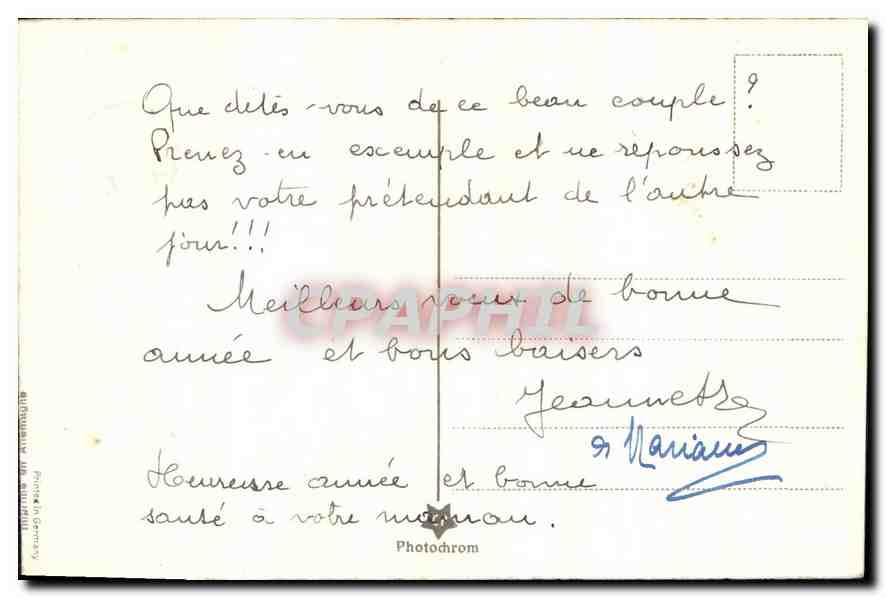 Que dites-vous de ce beau couple ?
Prenez-en exemple et ne repoussez
pas votre prétendant de l'autre
jour!!!
Meilleurs voeux de bonne
année et bons baisers
Jeannette
Heureuse année et bonne
santé à votre maman.
Photochrom
Printed in Germany
Imprimé en Allemagne
CPAPHIL